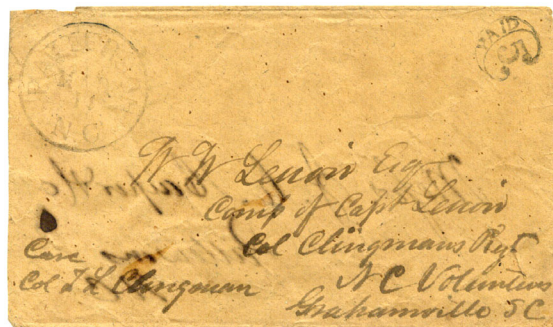 PAID
5
N.C.
W W Lenoir Esq
Comp of Capt Lenoir
Col Clingmans Regt
N C Volunteers
Grahamville S C
Care
Col T L Clingman